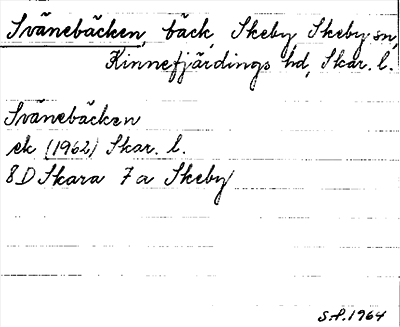 Svänebäcken, bäck, Skeby, Skeby sn,
Kinnefjärdings hd, Skar. l.
Svänebäcken
ek (1962) Skar. l.
8D Skara 7a Skeby
S.P. 1964